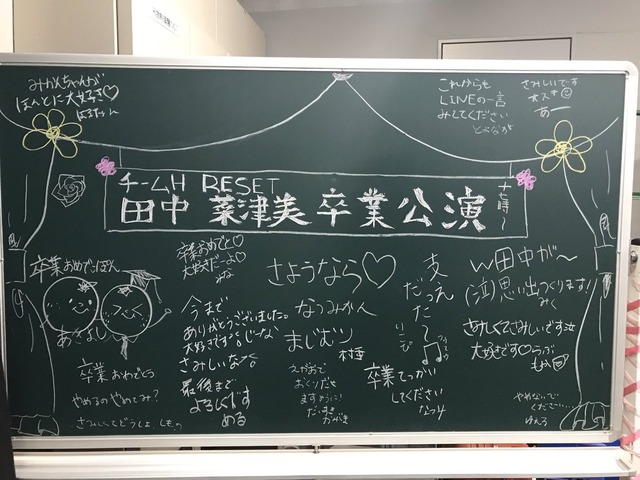 みかんちゃんが
ほんとに大好き♡
はるたん
これからも
LINEの一言
みてください
さみしいです
大スキ
あー
チームH RESET
田中 菜津美 卒業公演
十七時〜
卒業おめでとう♡
大好きだーよ♡
卒業おめでっぽん
さようなら♡
なつみかん
まじむり
村重
支
だった〜
りこぴ
w田中が〜
(泣)思い出つくります!
みく
今まで
ありがとうございました。
大好きです。
さみしいな
さみしくてさみしいです
大好きです♡らぶ
もか
卒業おめでとう
やめるのやめてみ?
さみしくてどうしよ
最後まで
よろしくです
める
えがおで
おくりだせ
ますように!
だいすき
卒業てっかい
してください
なつみ
やめないで
ください…
ゆえる